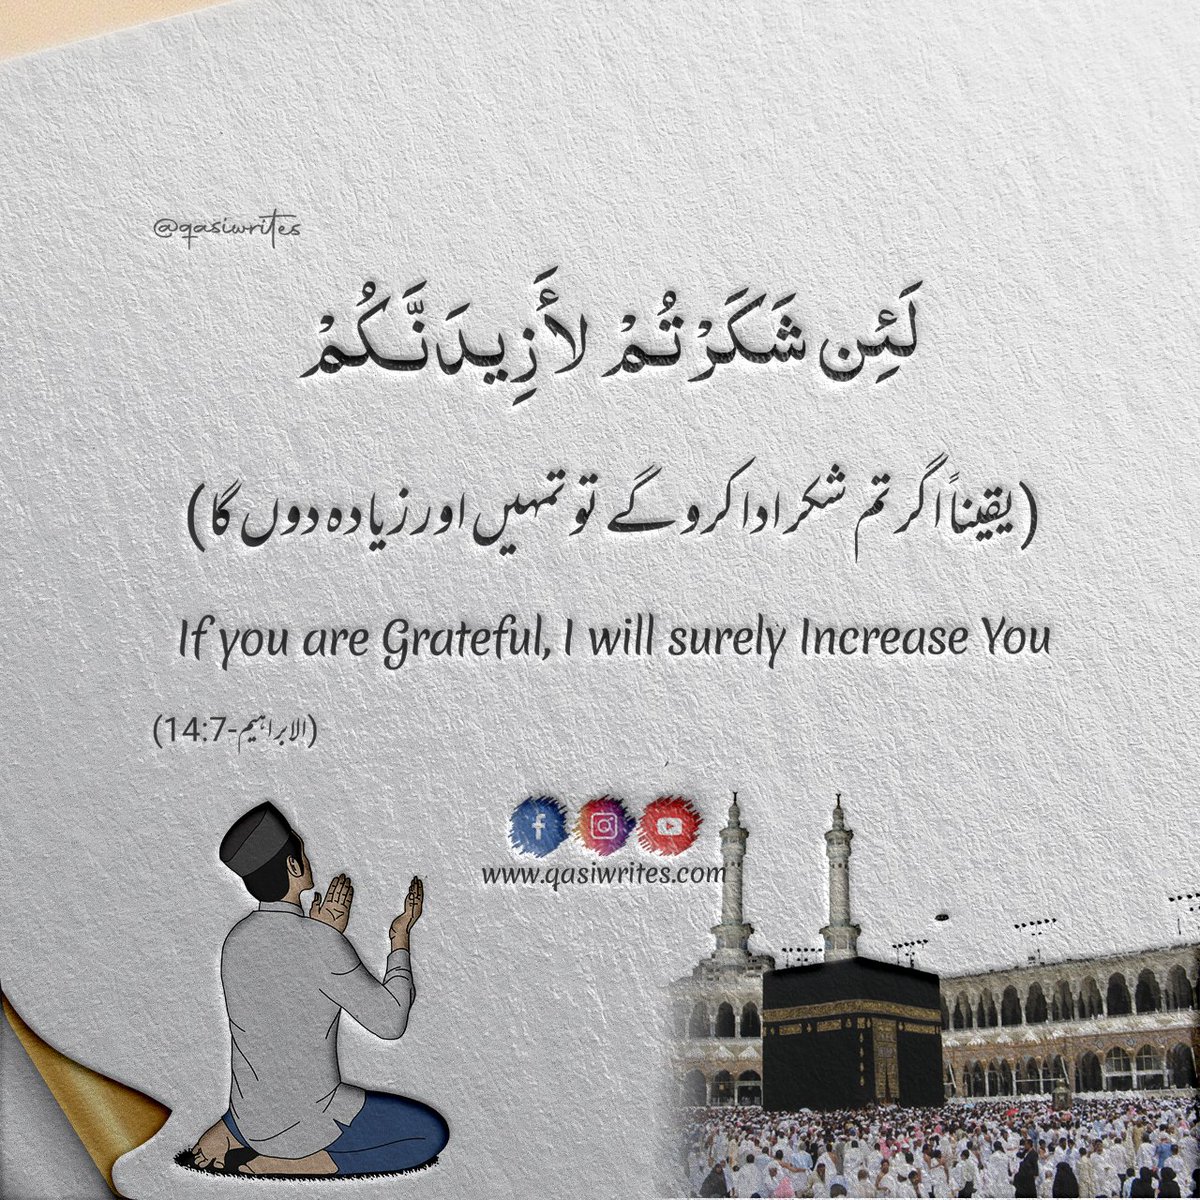 @qasiwrites
لَئِن شَكَرْتُمْ لأَزِيدَنَّكُمْ
(یقیناً اگر تم شکر ادا کرو گے تو تمہیں اور زیادہ دوں گا)
If you are Grateful, I will surely Increase You
(14:7-الابراہیم)
www.qasiwrites.com